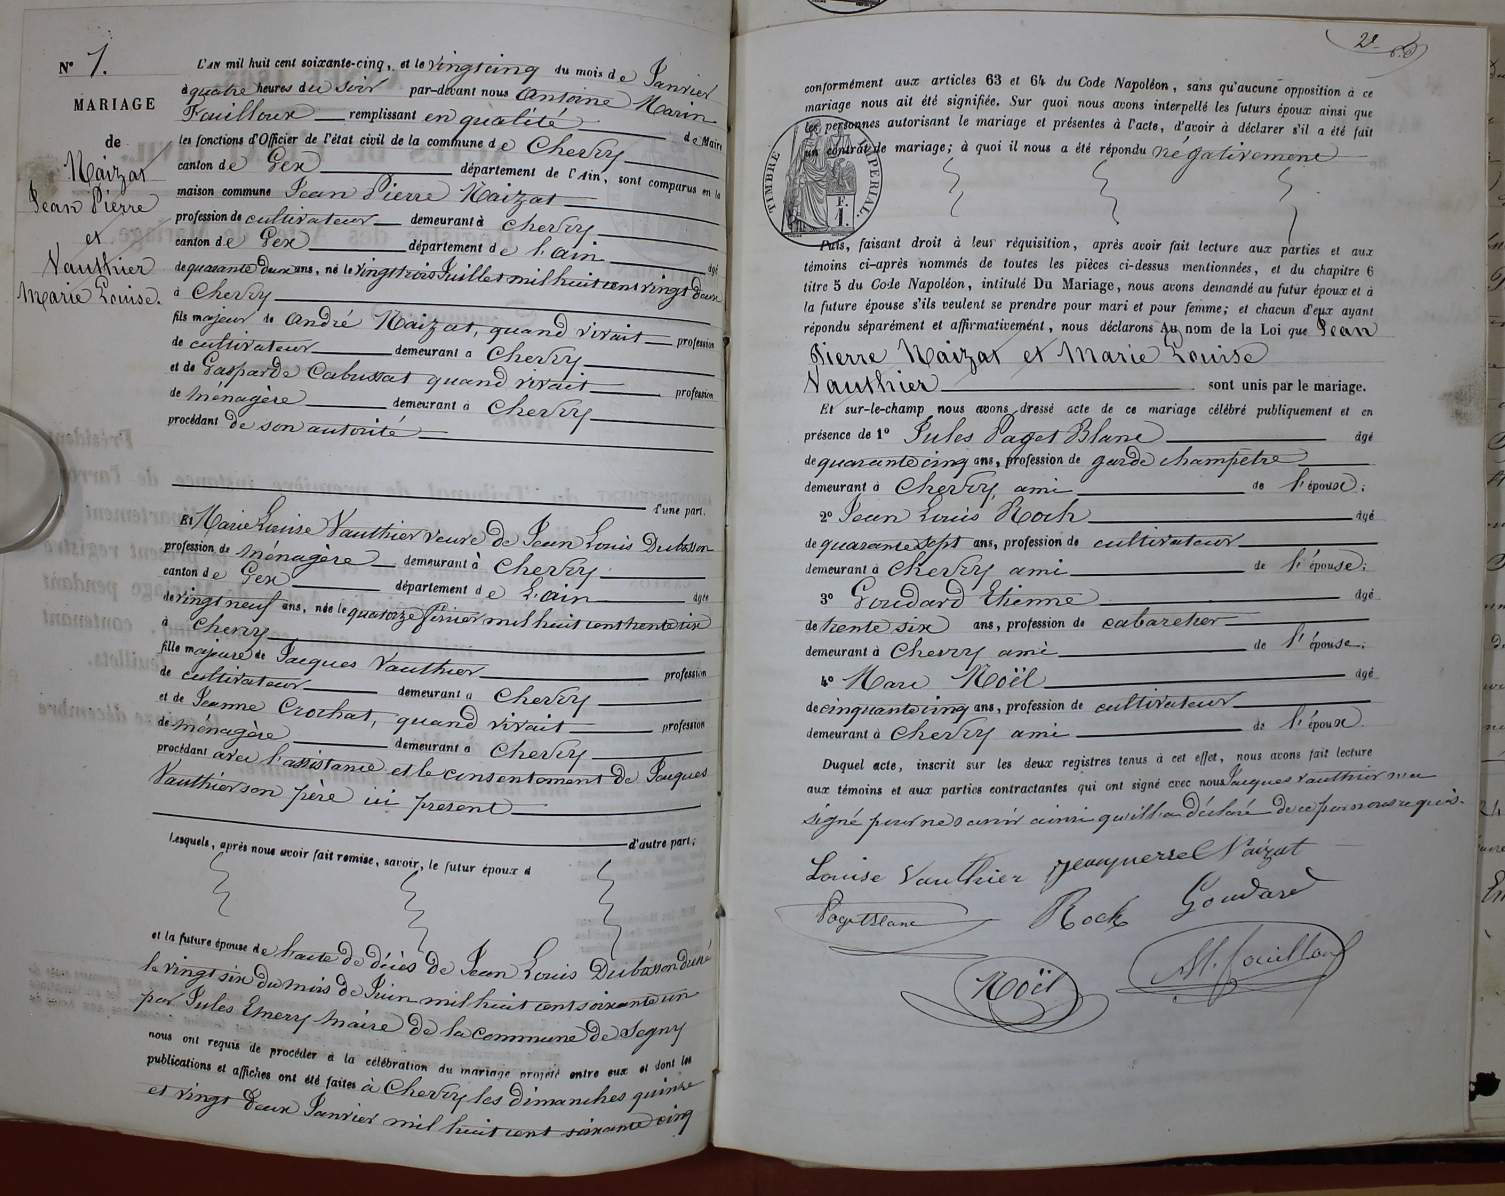 N° 1.
MARIAGE
de
Naizat
Jean Pierre
et
Vauthier
Marie Louise.
L'AN mil huit cent soixante-cinq, et le vingt cinq du mois de Janvier
à quatre heures du soir par-devant nous Antoine Marin
Fouilloux remplissant en qualité de Maire
les fonctions d'Officier de l'état civil de la commune de Chevry
canton de Gex département de l'Ain, sont comparus en la
maison commune Jean Pierre Naizat
profession de cultivateur demeurant à Chevry
canton de Gex département de l'ain âgé
de quarante deux ans, né le vingt trois Juillet mil huit cent vingt deux
à Chevry
fils majeur de André Naizat, quand vivait profession
de cultivateur demeurant à Chevry
et de Gasparde Cabussat quand vivait profession
de ménagère demeurant à Chevry
procédant de son autorité
d'une part.
Et Marie Louise Vauthier veuve de Jean Louis Dubosson
profession de ménagère demeurant à Chevry
canton de Gex département de l'ain âgée
de vingt neuf ans, née le quatorze février mil huit cent trente six
à Chevry
fille majeure de Jacques Vauthier profession
de cultivateur demeurant à Chevry
et de Jeanne Crochat, quand vivait profession
de ménagère demeurant à Chevry
procédant avec l'assistance et le consentement de Jacques
Vauthier son père ici présent
d'autre part;
Lesquels, après nous avoir fait remise, savoir, le futur époux d
et la future épouse de l'acte de décès de Jean Louis Dubosson duné
le vingt six du mois de Juin mil huit cent soixante un
par Jules Emery maire de la commune de Segny
nous ont requis de procéder à la célébration du mariage projeté entre eux et dont les
publications et affiches ont été faites à Chevry les dimanches quinze
et vingt deux Janvier mil huit cent soixante cinq
conformément aux articles 63 et 64 du Code Napoléon, sans qu'aucune opposition à ce
mariage nous ait été signifiée. Sur quoi nous avons interpellé les futurs époux ainsi que
les personnes autorisant le mariage et présentes à l'acte, d'avoir à déclarer s'il a été fait
un contrat de mariage; à quoi il nous a été répondu négativement
TIMBRE IMPÉRIAL.
F.
1.
Puis, faisant droit à leur réquisition, après avoir fait lecture aux parties et aux
témoins ci-après nommés de toutes les pièces ci-dessus mentionnées, et du chapitre 6
titre 5 du Code Napoléon, intitulé Du Mariage, nous avons demandé au futur époux et à
la future épouse s'ils veulent se prendre pour mari et pour femme; et chacun d'eux ayant
répondu séparément et affirmativement, nous déclarons Au nom de la Loi que Jean
Pierre Naizat et Marie Louise
Vauthier sont unis par le mariage.
Et sur-le-champ nous avons dressé acte de ce mariage célébré publiquement et en
présence de 1° Jules Paget Blanc âgé
de quarante cinq ans, profession de garde champetre
demeurant à Chevry, ami de l'époux;
2° Jean Louis Roch âgé
de quarante sept ans, profession de cultivateur
demeurant à Chevry ami de l'épouse;
3° Goudard Etienne âgé
de trente six ans, profession de cabaretier
demeurant à Chevry ami de l'épouse;
4° Marc Noël âgé
de cinquante cinq ans, profession de cultivateur
demeurant à Chevry ami de l'époux
Duquel acte, inscrit sur les deux registres tenus à cet effet, nous avons fait lecture
aux témoins et aux parties contractantes qui ont signé avec nous Jacques Vauthier n'a
signé pour ne savoir ainsi qu'il l'a déclaré de ce par nous requis.
Louise Vauthier Naizat
Paget Blanc Roch Goudard
Noël M. Fouilloux